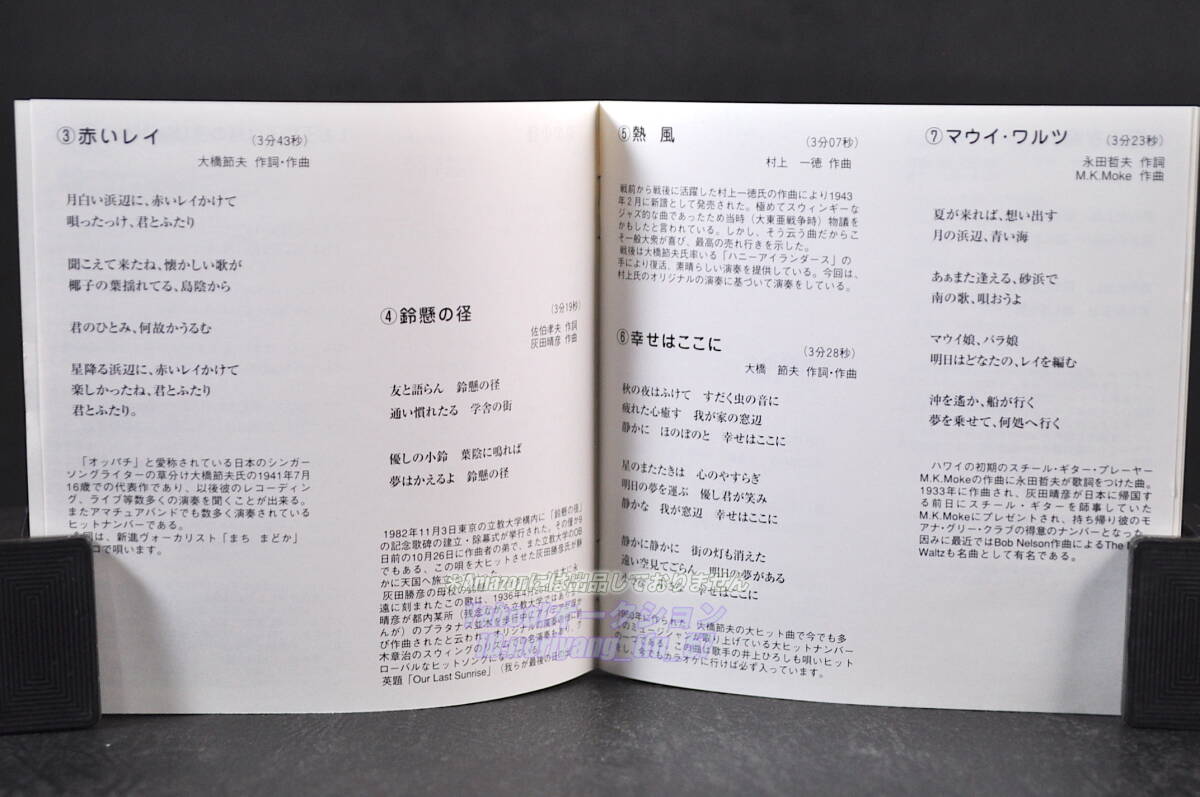 ③赤いレイ (3分43秒)
大橋節夫 作詞・作曲
月白い浜辺に、赤いレイかけて
唄ったっけ、君とふたり
聞こえて来たね、懐かしい歌が
椰子の葉揺れてる、島陰から
君のひとみ、何故かうるむ
星降る浜辺に、赤いレイかけて
楽しかったね、君とふたり
君とふたり。
「オッパチ」と愛称されている日本のシンガー
ソングライターの草分け大橋節夫氏の1941年7月
16歳での代表作であり、以後彼のレコーディン
グ、ライブ等数多くの演奏を聞くことが出来る。
またアマチュアバンドでも数多く演奏されている
ヒットナンバーである。
は、新進ヴォーカリスト「まち まどか」
コで唄います。
④鈴懸の径 (3分19秒)
佐伯孝夫 作詞
灰田晴彦 作曲
友と語らん 鈴懸の径
通い慣れたる 学舎の街
優しの小鈴 葉陰に鳴れば
夢はかえるよ 鈴懸の径
1982年11月3日東京の立教大学構内に「鈴懸の径」
の記念歌碑の建立・除幕式が挙行された。その僅か8
日前の10月26日に作曲者の弟で、また立教大学のOB
でもある、この唄を大ヒットさせた灰田勝彦氏が静
かに天国へ旅立
灰田勝彦の母校の
遠に刻まれたこの歌は、1936年4月
晴彦が都内某所(残念ながら立教大学ではあり
んが)のプラタナス並木を歩行中に
び作曲されたと云われ、オリジナル
木章治のスウィングのリズムの名演奏もあり、グ
ローバルなヒットソングになっている。
英題「Our Last Sunrise」(我らが最後の日
⑤熱 風 (3分07秒)
村上 一徳 作曲
戦前から戦後に活躍した村上一徳氏の作曲により1943
年2月に新譜として発売された。極めてスウィンギーな
ジャズ的な曲であったため当時(大東亜戦争時)物議を
かもしたと言われている。しかし、そう云う曲だからこ
そ一般大衆が喜び、最高の売れ行きを示した。
戦後は大橋節夫氏率いる「ハニーアイランダース」の
手により復活、素晴らしい演奏を提供している。今回は、
村上氏のオリジナルの演奏に基づいて演奏をしている。
⑥幸せはここに (3分28秒)
大橋 節夫 作詞・作曲
秋の夜はふけて すだく虫の音に
疲れた心癒す 我が家の窓辺
静かに ほのぼのと 幸せはここに
星のまたたきは 心のやすらぎ
明日の夢を運ぶ 優し君が笑み
静かな 我が窓辺 幸せはここに
静かに静かに 街の灯も消えた
遠い空見てごらん 明日の夢がある
幸せはここに
1960年に作られた 大橋節夫の大ヒット曲で今でも多
くのミュージシャンが取り上げている大ヒットナンバー
の一つである。この曲は歌手の井上ひろしも唄いヒット
をし、今でもカラオケに行けば必ず入っています。
⑦マウイ・ワルツ (3分23秒)
永田哲夫 作詞
M.K.Moke 作曲
夏が来れば、想い出す
月の浜辺、青い海
あぁまた逢える、砂浜で
南の歌、唄おうよ
マウイ娘、バラ娘
明日はどなたの、レイを編む
沖を遙か、船が行く
夢を乗せて、何処へ行く
ハワイの初期のスチール・ギター・プレーヤー
M.K.Mokeの作曲に永田哲夫が歌詞をつけた曲。
1933年に作曲され、灰田晴彦が日本に帰国す
る前日にスチール・ギターを師事していた
M.K.Mokeにプレゼントされ、持ち帰り彼のモ
アナ・グリー・クラブの得意のナンバーとなった。
因みに最近ではBob Nelson作曲によるThe
Waltzも名曲として有名である。
※Amazonには出品しておりません
オークション